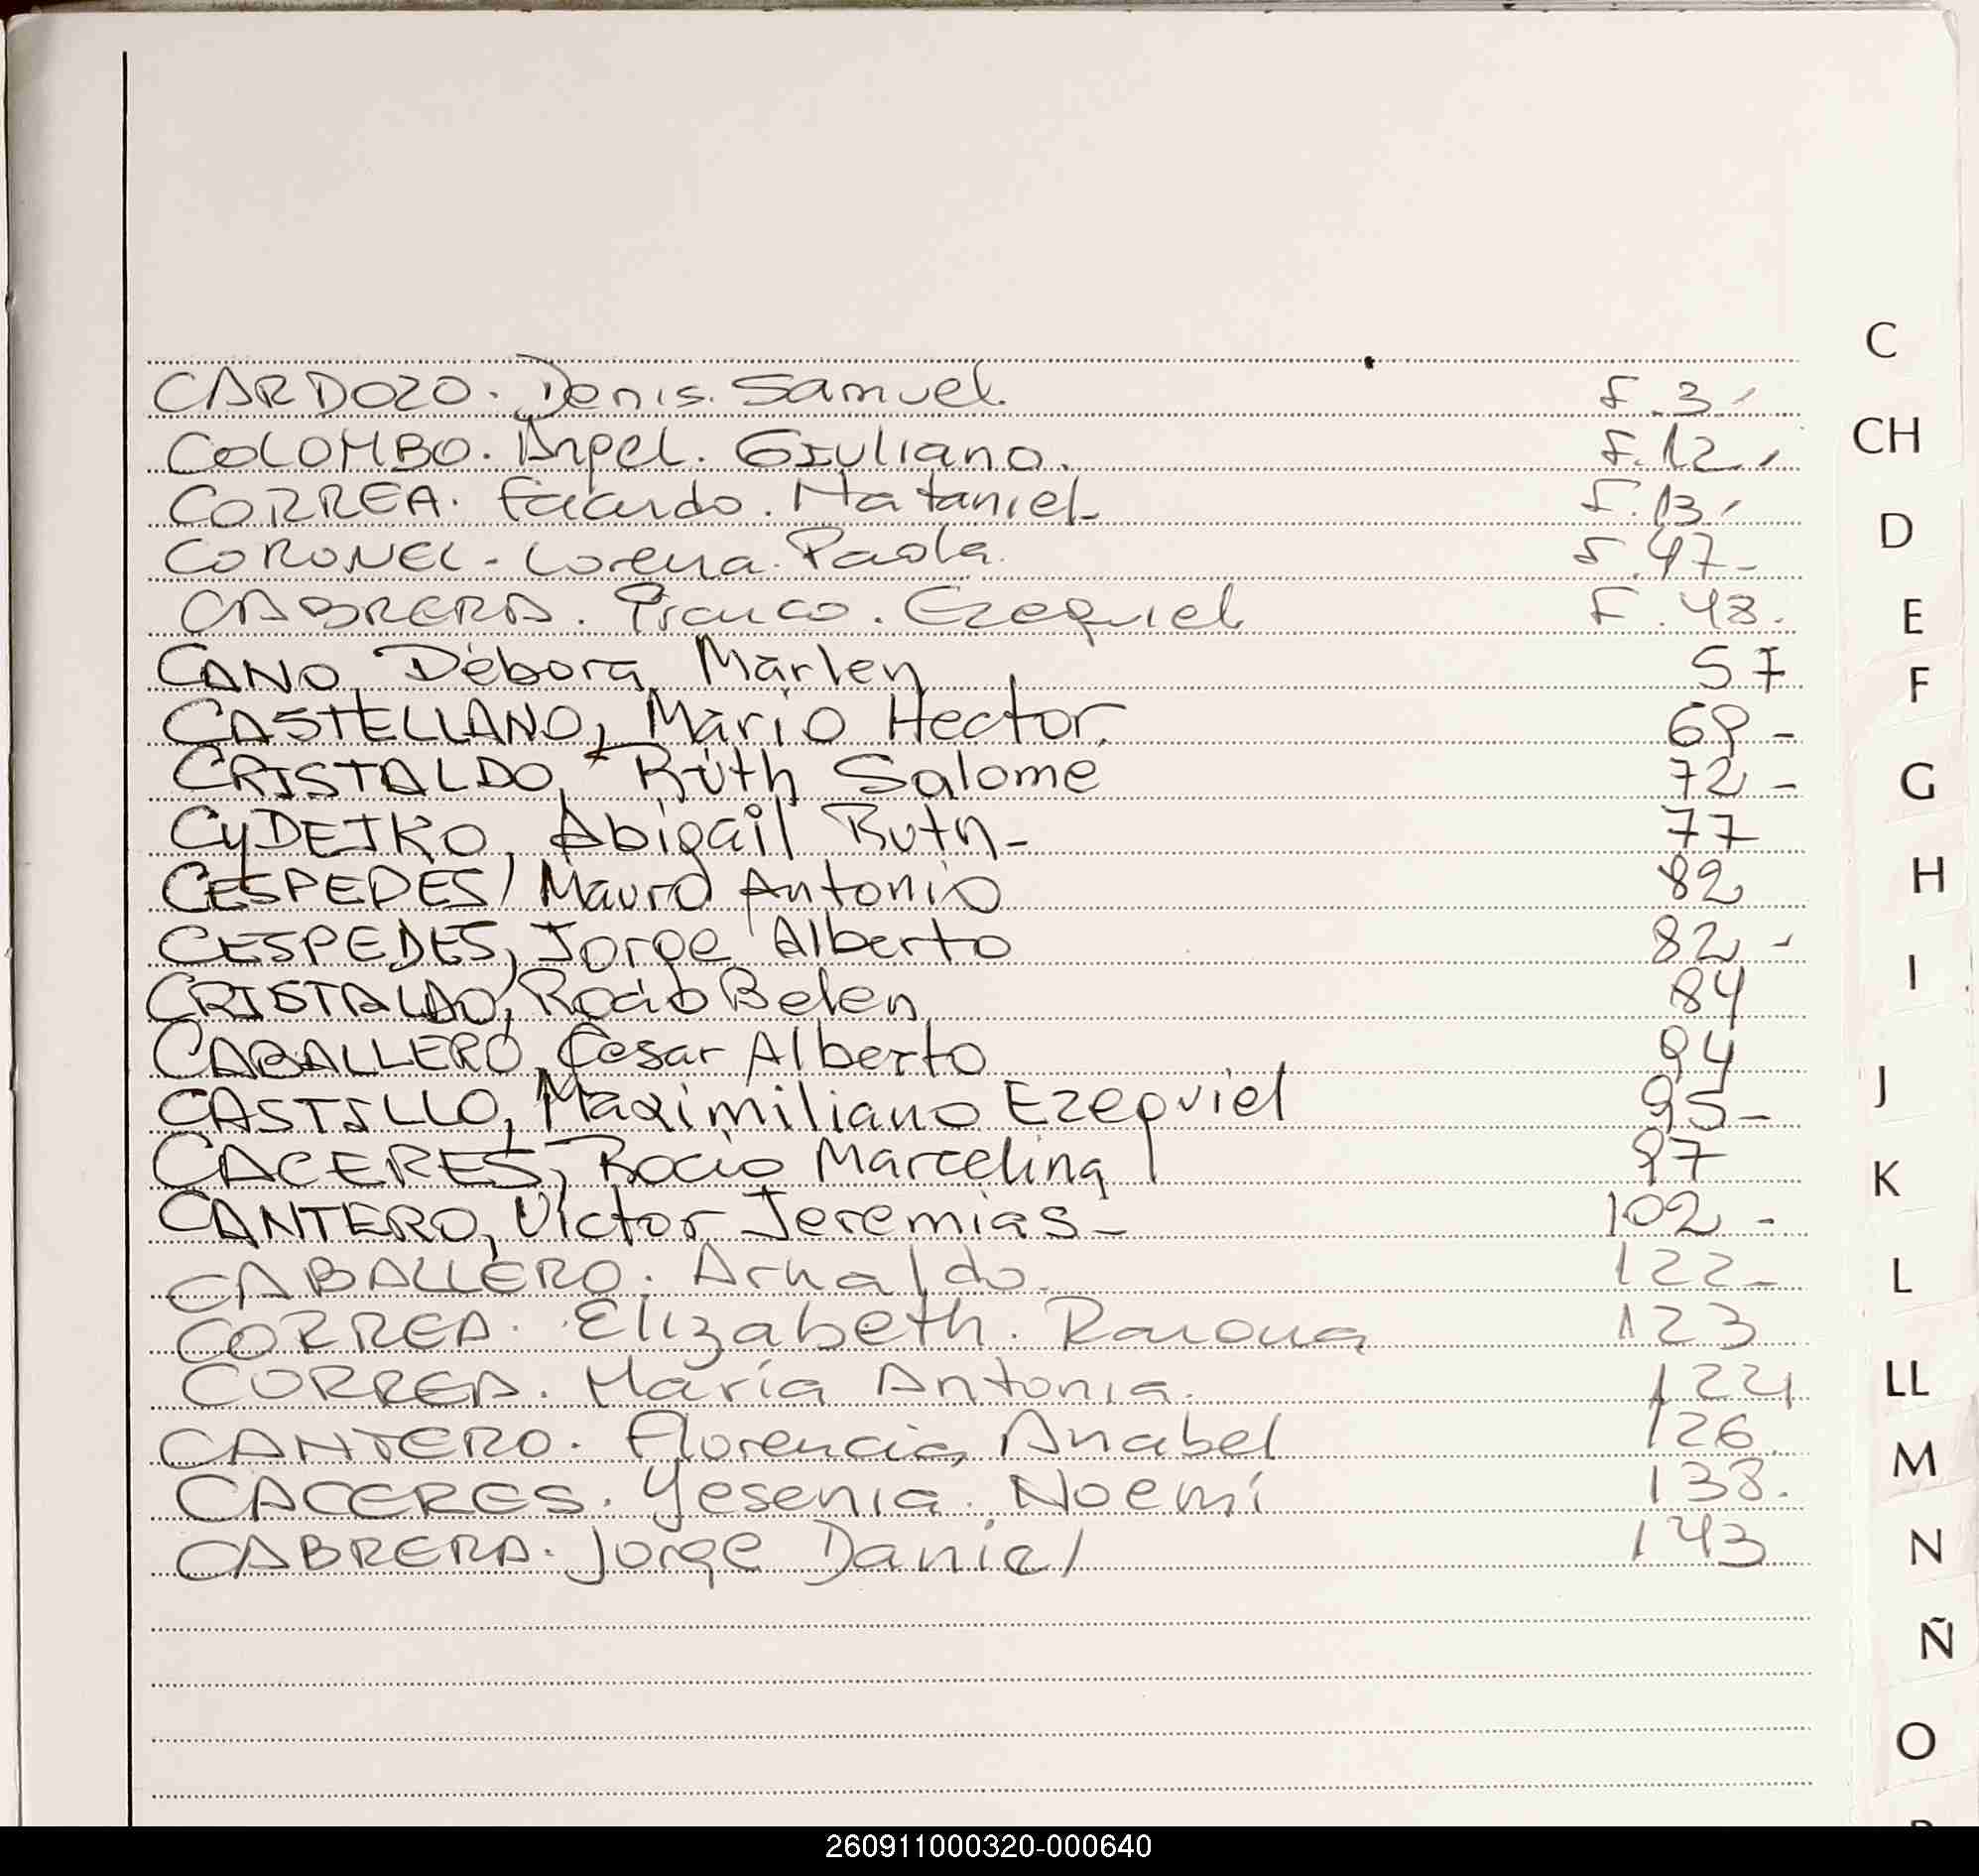 C
CARDOZO. Denis. Samuel. F. 3.
COLOMBO. Angel. Giuliano. F. 12.
CH
CORREA. Facundo. Nataniel- F. 13.
D
CORONEL - Lorena. Paola. F. 47-
CABRERA. Franco. Ezequiel F. 48.
E
CANO, Débora Marlen 57
F
CASTELLANO, Mario Hector. 69-
CRISTALDO, Ruth Salome 72-
G
CyDEJKO, Abigail Ruth- 77
CESPEDES, Mauro Antonio 82
H
CESPEDES, Jorge Alberto 82-
I
CRISTALDO, Rocio Belen 84
CABALLERO, Cesar Alberto 94
J
CASTILLO, Maximiliano Ezequiel 95-
CACERES, Rocio Marcelina 97
K
CANTERO, Victor Jeremias- 102-
CABALLERO. Arnaldo. 122-
L
CORREA. Elizabeth. Ramona 123
CORREA. María Antonia. 124
LL
CANTERO. Florencia, Anabel 126.
M
CACERES. Yesenia. Noemí 138.
CABRERA. Jorge Daniel 143
N
Ñ
O
260911000320-000640